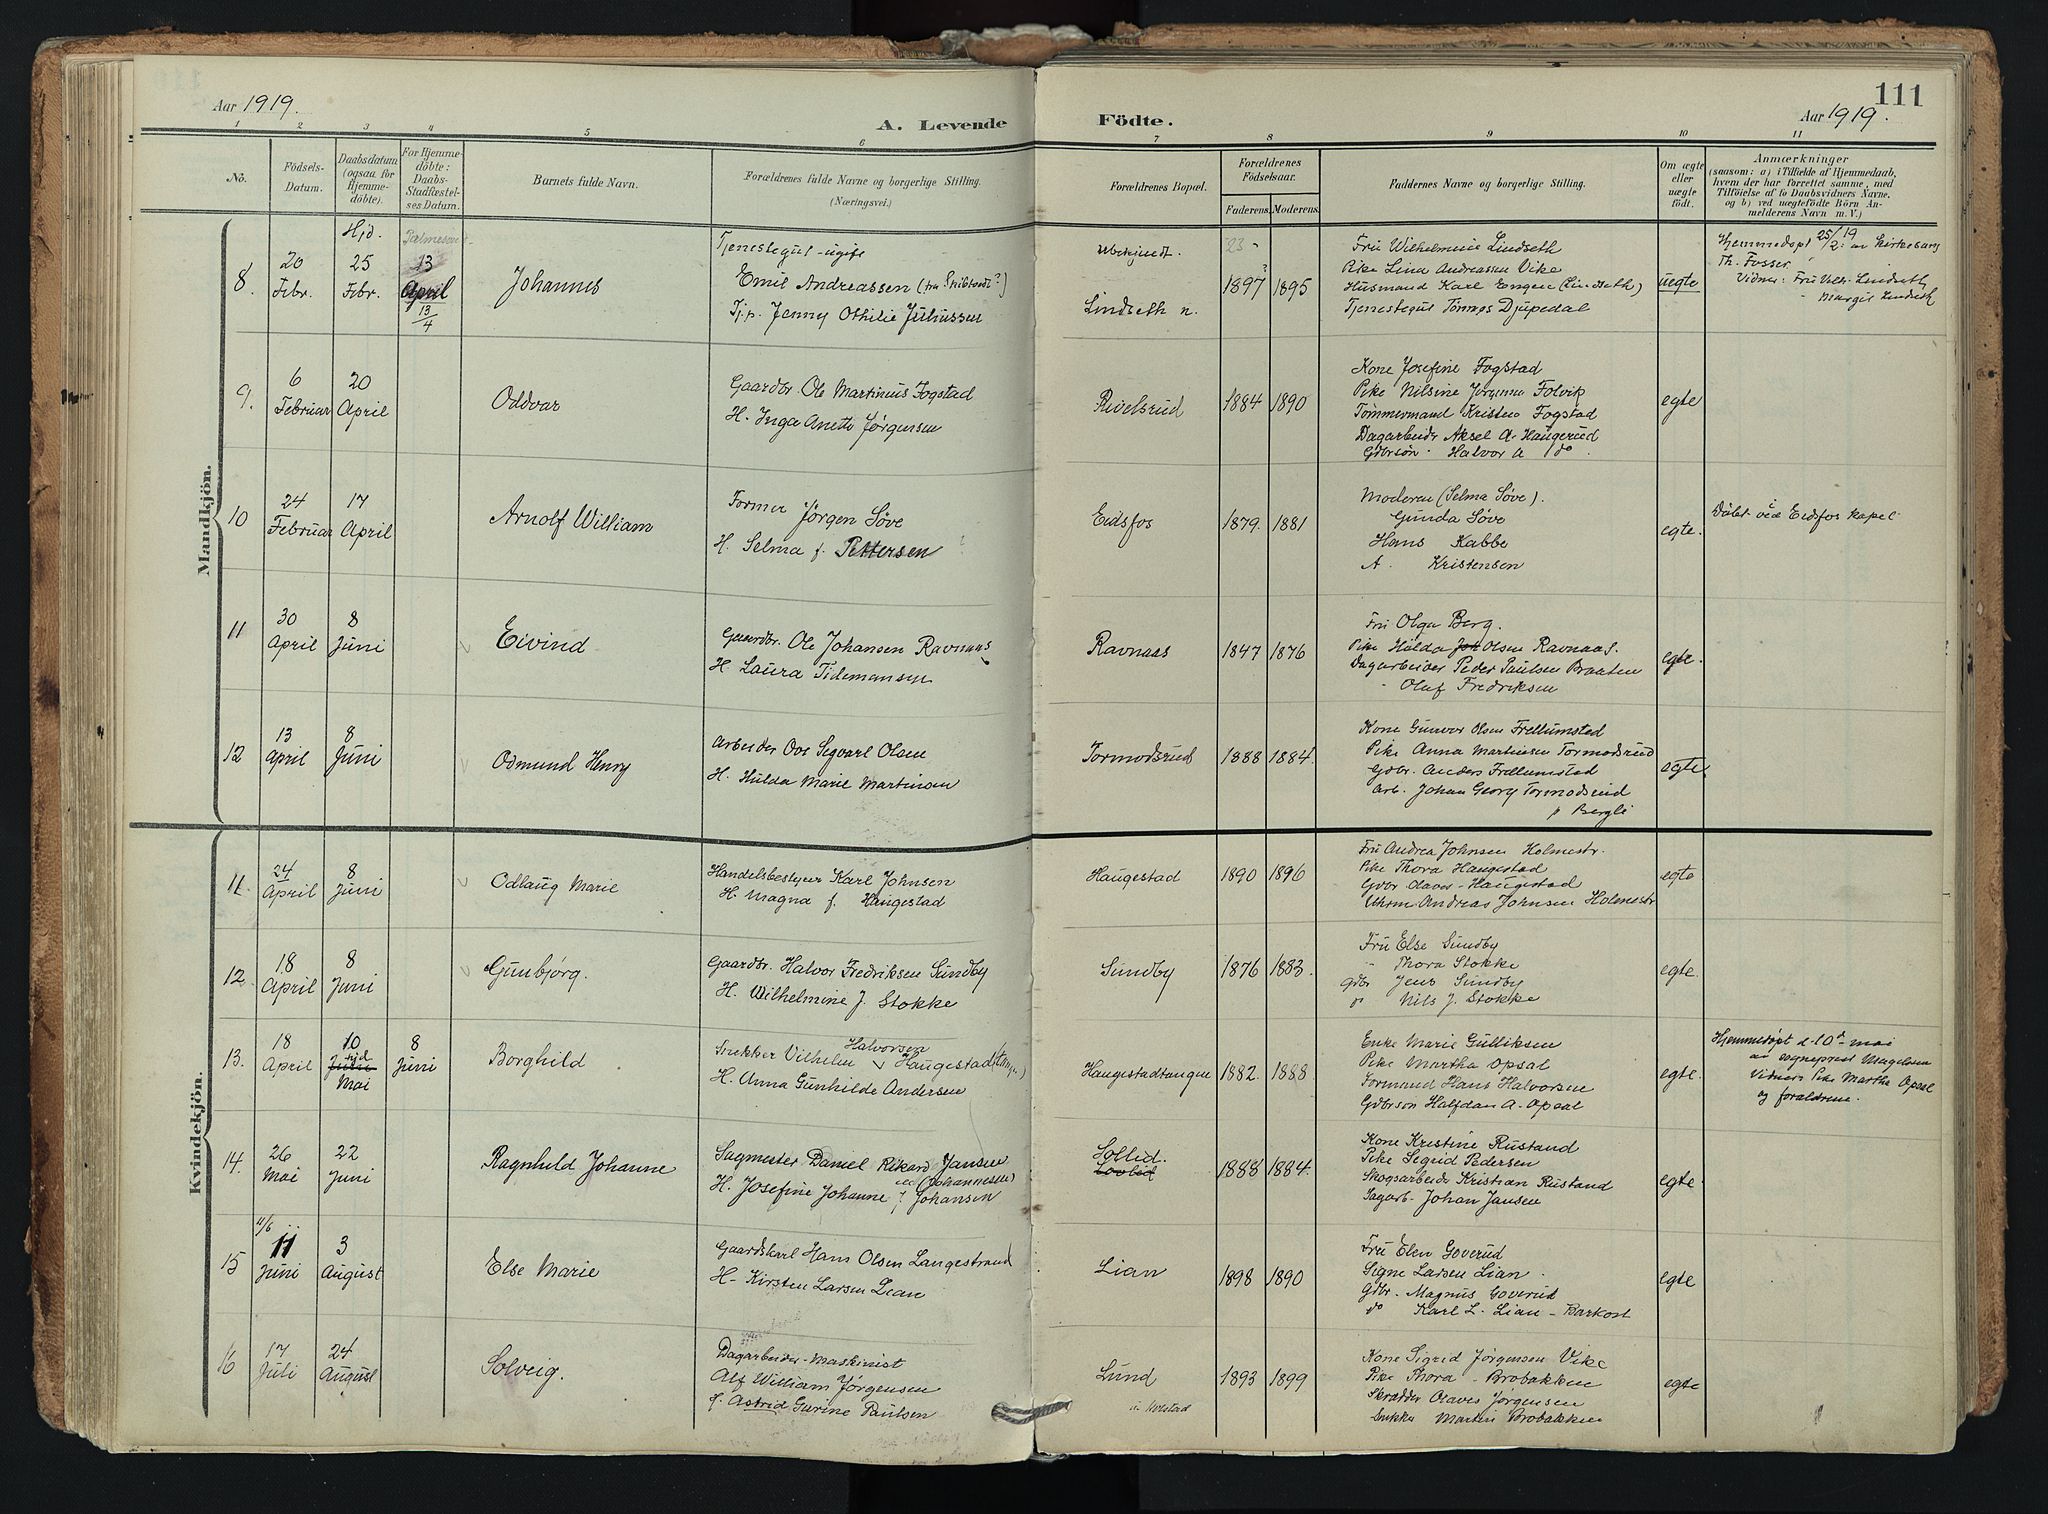 Aar 1919.
A. Levende Födte.
Aar 1919.
111
1 2 3 4 5 6 7 8 9 10 11
No.
Födsels-Datum.
Daabsdatum (ogsaa for Hjemmedöbte).
For Hjemmedöbte: Daabs-Stadfæstelses Datum.
Barnets fulde Navn.
Forældrenes fulde Navne og borgerlige Stilling. (Næringsvei.)
Forældrenes Bopæl.
Forældrenes Födselsaar.
Faderens. Moderens.
Faddernes Navne og borgerlige Stilling.
Om ægte eller uægte födt.
Anmærkninger
(saasom: a) i Tilfælde af Hjemmedaab, hvem der har forrettet samme, med Tilföielse af to Daabsvidners Navne. og b) ved uægtefödte Börn Anmelderens Navn m. V.)
Mandkjön.
8. 20 Febr. Hjd. 25 Febr. 13 April 13/4
Johannes
Tjenestegut - ugift
Emil Andreassen
Tj.p. Jenny Othilie Juliussen
Ubekjendt.
Lindseth n.
23
1897? 1895
Fru Wilhelmine Lindseth
Pike Lina Andreassen Vike
Husmand Karl Engene (Lindseth)
Tjenestegut Djupedal
uegte
Hjemmedøpt 25/2 19 av kirkesang
Th. Fosser
Vidner: Fru Vilh. Lindseth
Margit Lindseth
9. 6 Februar 20 April
Oddvar
Gaardbr. Ole Martinius Fogstad
H. Inga Anette Jørgensen
Rivelsrud
1884 1890
Kone Josefine Fogstad
Pike Nilsine Jørgine Folvik
Tømmermand Kristen Fogstad
Dagarbeider Aksel A. Haugerud
Gdbrsøn. Halvor A do.
egte
10 24 Februar 17 April
Arnolf William
Former Jörgen Söve
H. Selma f. Pettersen
Eidsfos
1879 1881
Moderen (Selma Söve).
Gunda Söve
Hans Kabbe
A. Kristensen
egte.
Döbt ved Eidsfos kapel
11 30 April 8 Juni
Eivind
Gaardbr. Ole Johansen Ravnaas
H. Laura Tidemansen
Ravnaas
1847 1876
Fru Olga Berg.
Pike Hulda Olsen Ravnaas.
Dagarbeider Peder Paulsen Braaten
- Oluf Fredriksen
egte.
12 13 April 8 Juni
Odmund Henry
Arbeider Ove Segvarl Olsen
H. Hulda Marie Martinsen
Tormodsrud
1888 1884.
Kone Gunvor Olsen Frellumstad
Pike Anna Martinsen Tormodsrud
Gdbr. Anders Frellumstad
Arb. Johan Georg Tormodsrud
p Bergli
egte
Kvindekjön.
11. 24 April 8 Juni
Odlaug Marie
Handelsbestyrer Karl Johnsen
H. Magna f. Haugestad
Haugestad
1890 1896
Fru Andrea Johnsen Holmestr.
Pike Thora Haugestad
Gdbr Olaves - Haugestad
Uhrm. Andreas Johnsen Holmestr
egte
12. 18 April 8 Juni
Gunbjörg.
Gaardbr. Halvor Fredriksen Sundby
H. Wilhelmine J. Stokke
Sundby
1876 1883.
Fru Else Sundby
- Thora Stokke
Gdbr Jens Sundby
do Nils J. Stokke
egte.
13. 18 April 10 Mai 8 Juni
Borghild
Halvorsen
Snekker Vilhelm Haugestad
H. Anna Gunhilde Andersen
Haugestadtangen
1882. 1888.
Enke Marie Gulliksen
Pike Martha Opsal
Formand Hans Halvorsen
Gdbrsøn Halfdan A. Opsal
egte.
Hjemmedøpt d. 10d mai
av sogneprest Magelssen
Vidner: Pike Martha Opsal
og forældrene.
14. 26 Mai 22 Juni
Ragnhild Johanne
Sagmester Daniel Rikard Jansen
(Johannesen)
H. Josefine Johanne f. Johansen
Sollid.
1888 1884.
Kone Kristine Rustand
Pike Sigrid Pedersen
Skogsarbeider Kristian Rustand
Sagarb. Johan Jansen
egte.
15 11/6 11 Juni 3 August
Else Marie
Gaardskarl Hans Olsen Langestrand
H. Kirsten Larsen Lian
Lian
1898 1890
Fru Elen Goverud
Signe Larsen Lian.
Gdbr. Magnus Goverud
do Karl L. Lian - Barkost
egte
16 17 Juli 24 August
Solveig.
Dagarbeider - Maskinist
Alf William Jørgensen
f. Astrid Gurine Paulsen
Lund
1893 1899
Kone Sigrid Jørgensen Vike
Pike Thora - Brobakken
Skrædder Olaves Jørgensen
Snekker Martin Brobakken
egte